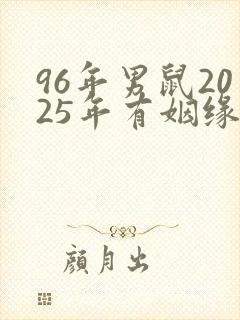 96年男鼠20
25年有姻缘
顏月出